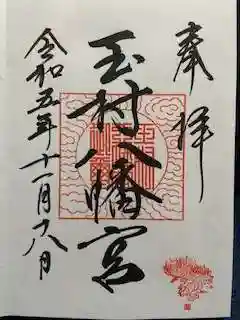 奉拝
玉村八幡宮
令和五年十一月十八日